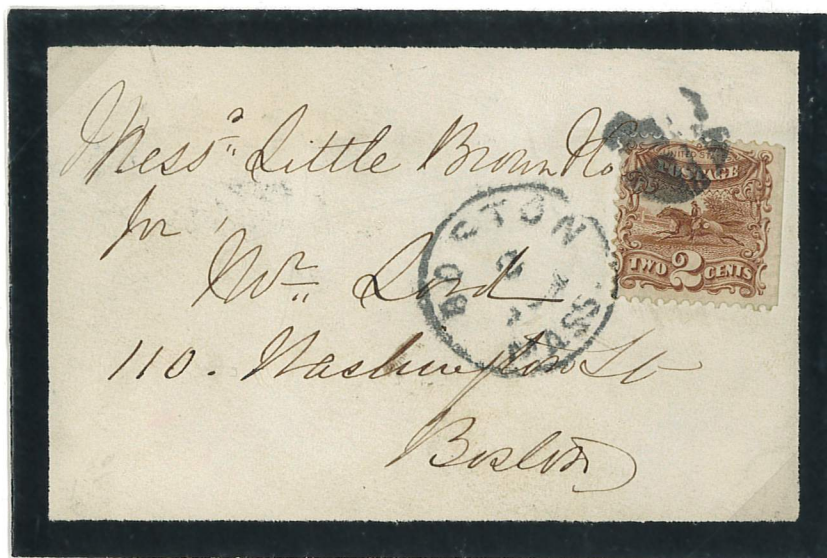 Messrs Little Brown & Co
for
Mr. Lord
110. Washington St
Boston
BOSTON
MASS.
UNITED STATES
POSTAGE
TWO 2 CENTS